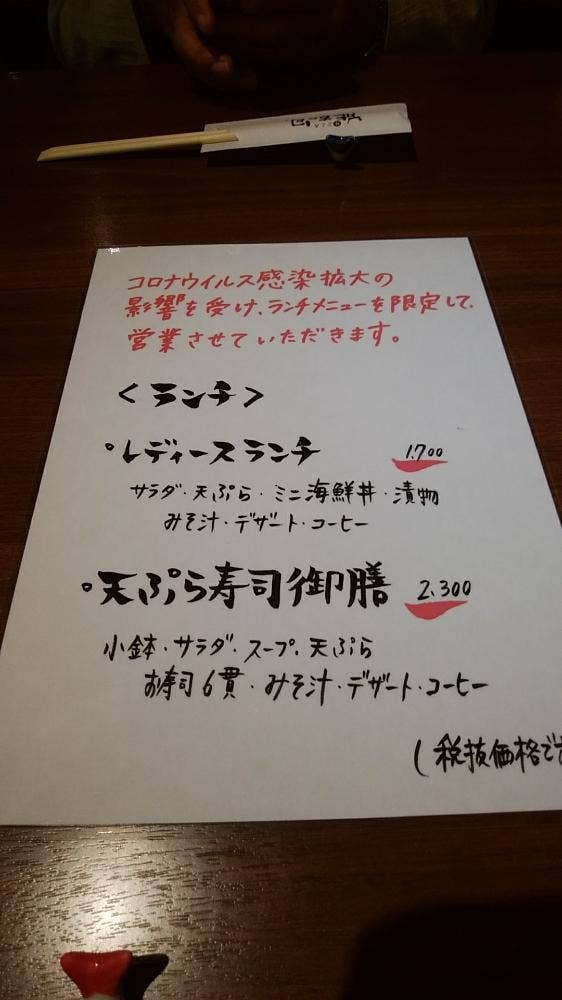 コロナウイルス感染拡大の
影響を受け、ランチメニューを限定して、
営業させていただきます。
<ランチ>
・レディースランチ 1.700
サラダ・天ぷら・ミニ海鮮丼・漬物
みそ汁・デザート・コーヒー
・天ぷら寿司御膳 2.300
小鉢・サラダ・スープ・天ぷら
お寿司6貫・みそ汁・デザート・コーヒー
(税抜価格です